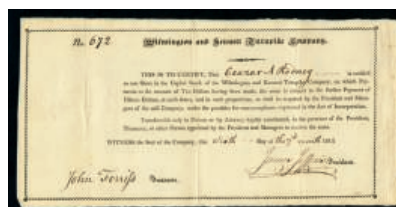 No. 672 Wilmington and Kennett Turnpike Company.
THIS IS TO CERTIFY, That Ceasar A Rodney is entitled
to one Share in the Capital Stock of the Wilmington and Kennett Turnpike Company, on which Pay-
ments to the amount of Ten Dollars having been made, the same is subject to the further Payment of
Fifteen Dollars, at such times, and in such proportions, as shall be required by the President and Mana-
gers of the said Company, under the penalties for non-compliance, expressed in the Act of Incorporation.
Transferrable only in Person or by Attorney legally constituted, in the presence of the President,
Treasurer, or other Person appointed by the President and Managers to receive the same.
WITNESS the Seal of the Company, this Sixth day of the 7th month 181
President.
John Torriss Treasurer.